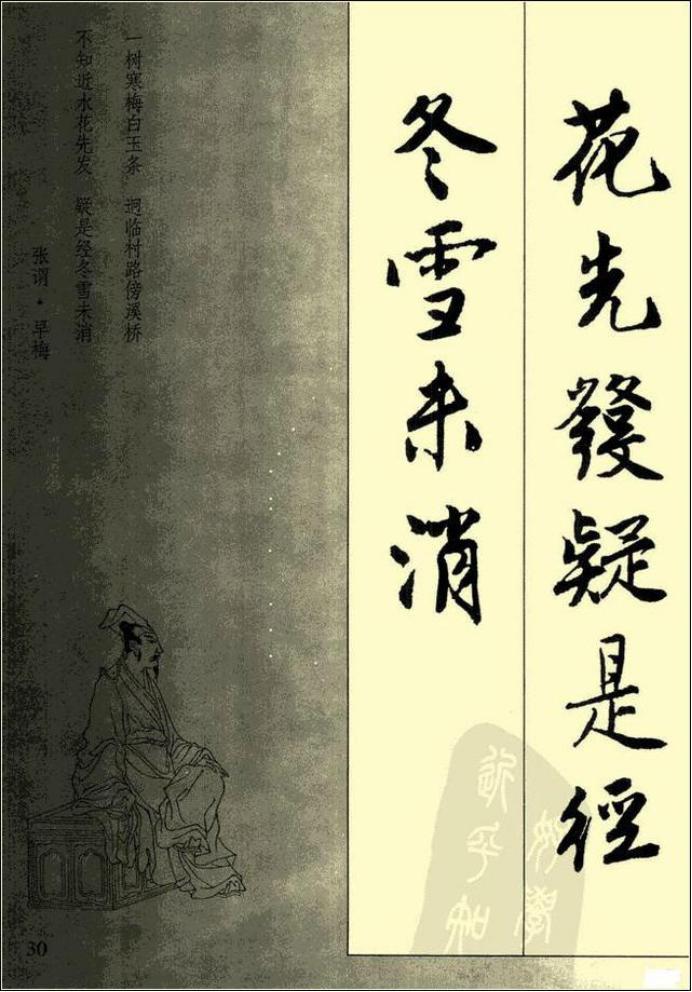 花先發疑是經
冬雪未消
一树寒梅白玉条 迥临村路傍溪桥
不知近水花先发 疑是经冬雪未消
张谓·早梅
好學
近乎知
30